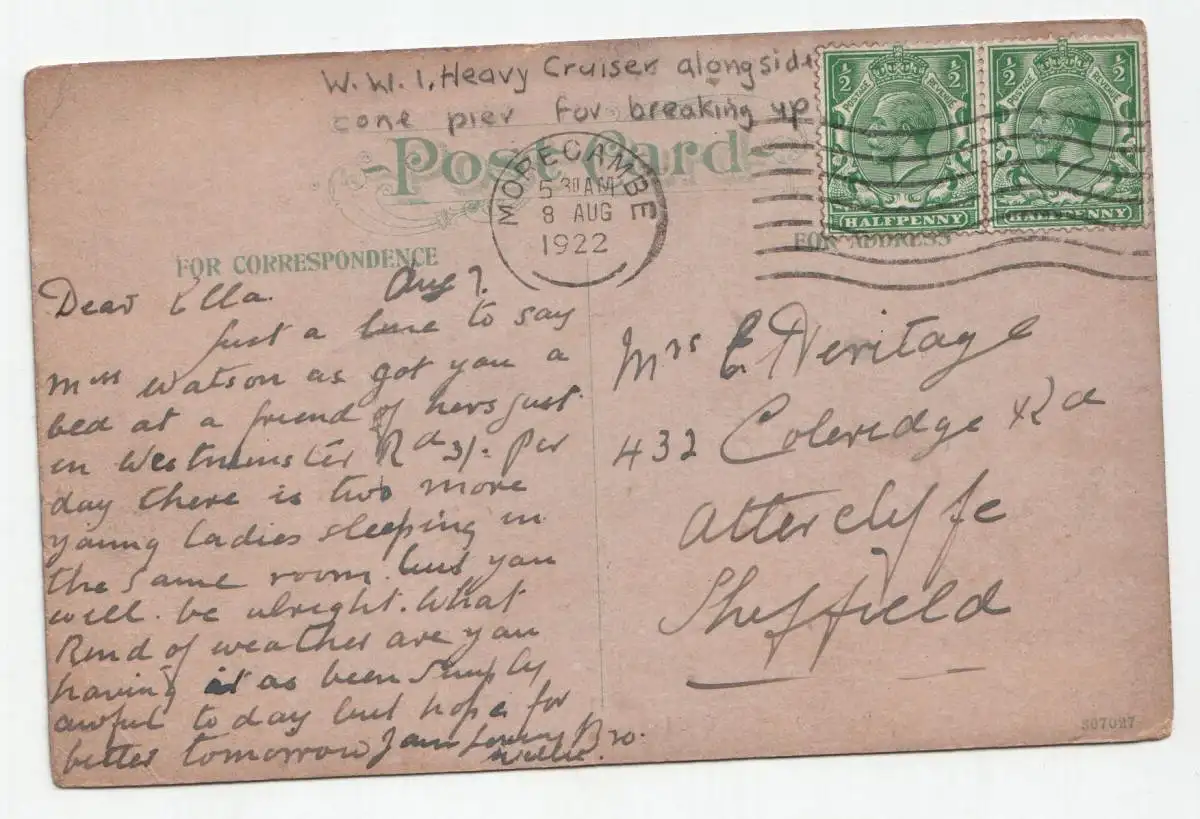 W.W.1, Heavy Cruiser alongside
cone pier for breaking up
Post Card
MORECAMBE
5 30 AM
8 AUG
1922
½ ½
POSTAGE REVENUE
HALFPENNY
½ ½
POSTAGE REVENUE
HALFPENNY
FOR CORRESPONDENCE
FOR ADDRESS
Dear Ella. Aug 7.
Just a line to say
Miss Watson as got you a
bed at a friend of hers just
in Westminster Rd 3/. per
day there is two more
young ladies sleeping in
the same room. but you
will be alright. What
Kind of weather are you
having it as been simply
awful to day but hope for
better tomorrow I am Loving Bro.
Willie.
Mrs E Heritage
432 Coleridge Rd
Attercliffe
Sheffield
S07027